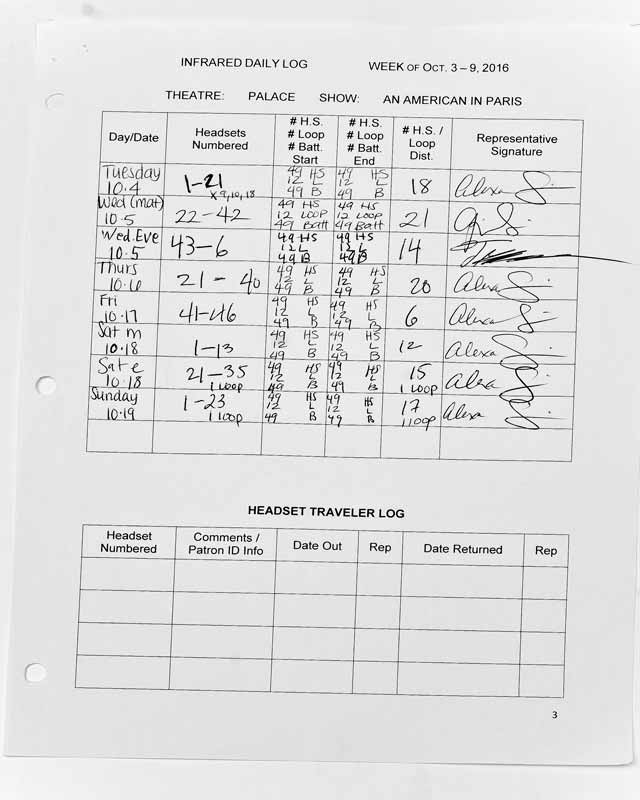 INFRARED DAILY LOG WEEK OF OCT. 3 – 9, 2016
THEATRE: PALACE SHOW: AN AMERICAN IN PARIS
Day/Date Headsets Numbered # H.S. # Loop # Batt. Start # H.S. # Loop # Batt. End # H.S. / Loop Dist. Representative Signature
Tuesday 10.4 1-21 x 9,10,18 49 HS 12 L 49 B 49 HS 12 L 49 B 18 Alexa
Wed (mat) 10.5 22-42 49 HS 12 LOOP 49 Batt 49 HS 12 LOOP 49 Batt 21
Wed. Eve 10.5 43-6 49 HS 12 L 49 B 49 HS 12 L 49 B 14
Thurs 10.6 21-40 49 HS 12 L 49 B 49 HS 12 L 49 B 20 Alexa
Fri 10.17 41-46 49 HS 12 L 49 B 49 HS 12 L 49 B 6 Alexa
Sat m 10.18 1-13 49 HS 12 L 49 B 49 HS 12 L 49 B 12 Alexa
Sat e 10.18 21-35 1 LOOP 49 HS 12 L 49 B 49 HS 12 L 49 B 15 1 LOOP Alexa
Sunday 10.19 1-23 1 loop 49 HS 12 L 49 B 49 HS 12 L 49 B 17 1 loop Alexa
HEADSET TRAVELER LOG
Headset Numbered Comments / Patron ID Info Date Out Rep Date Returned Rep
3